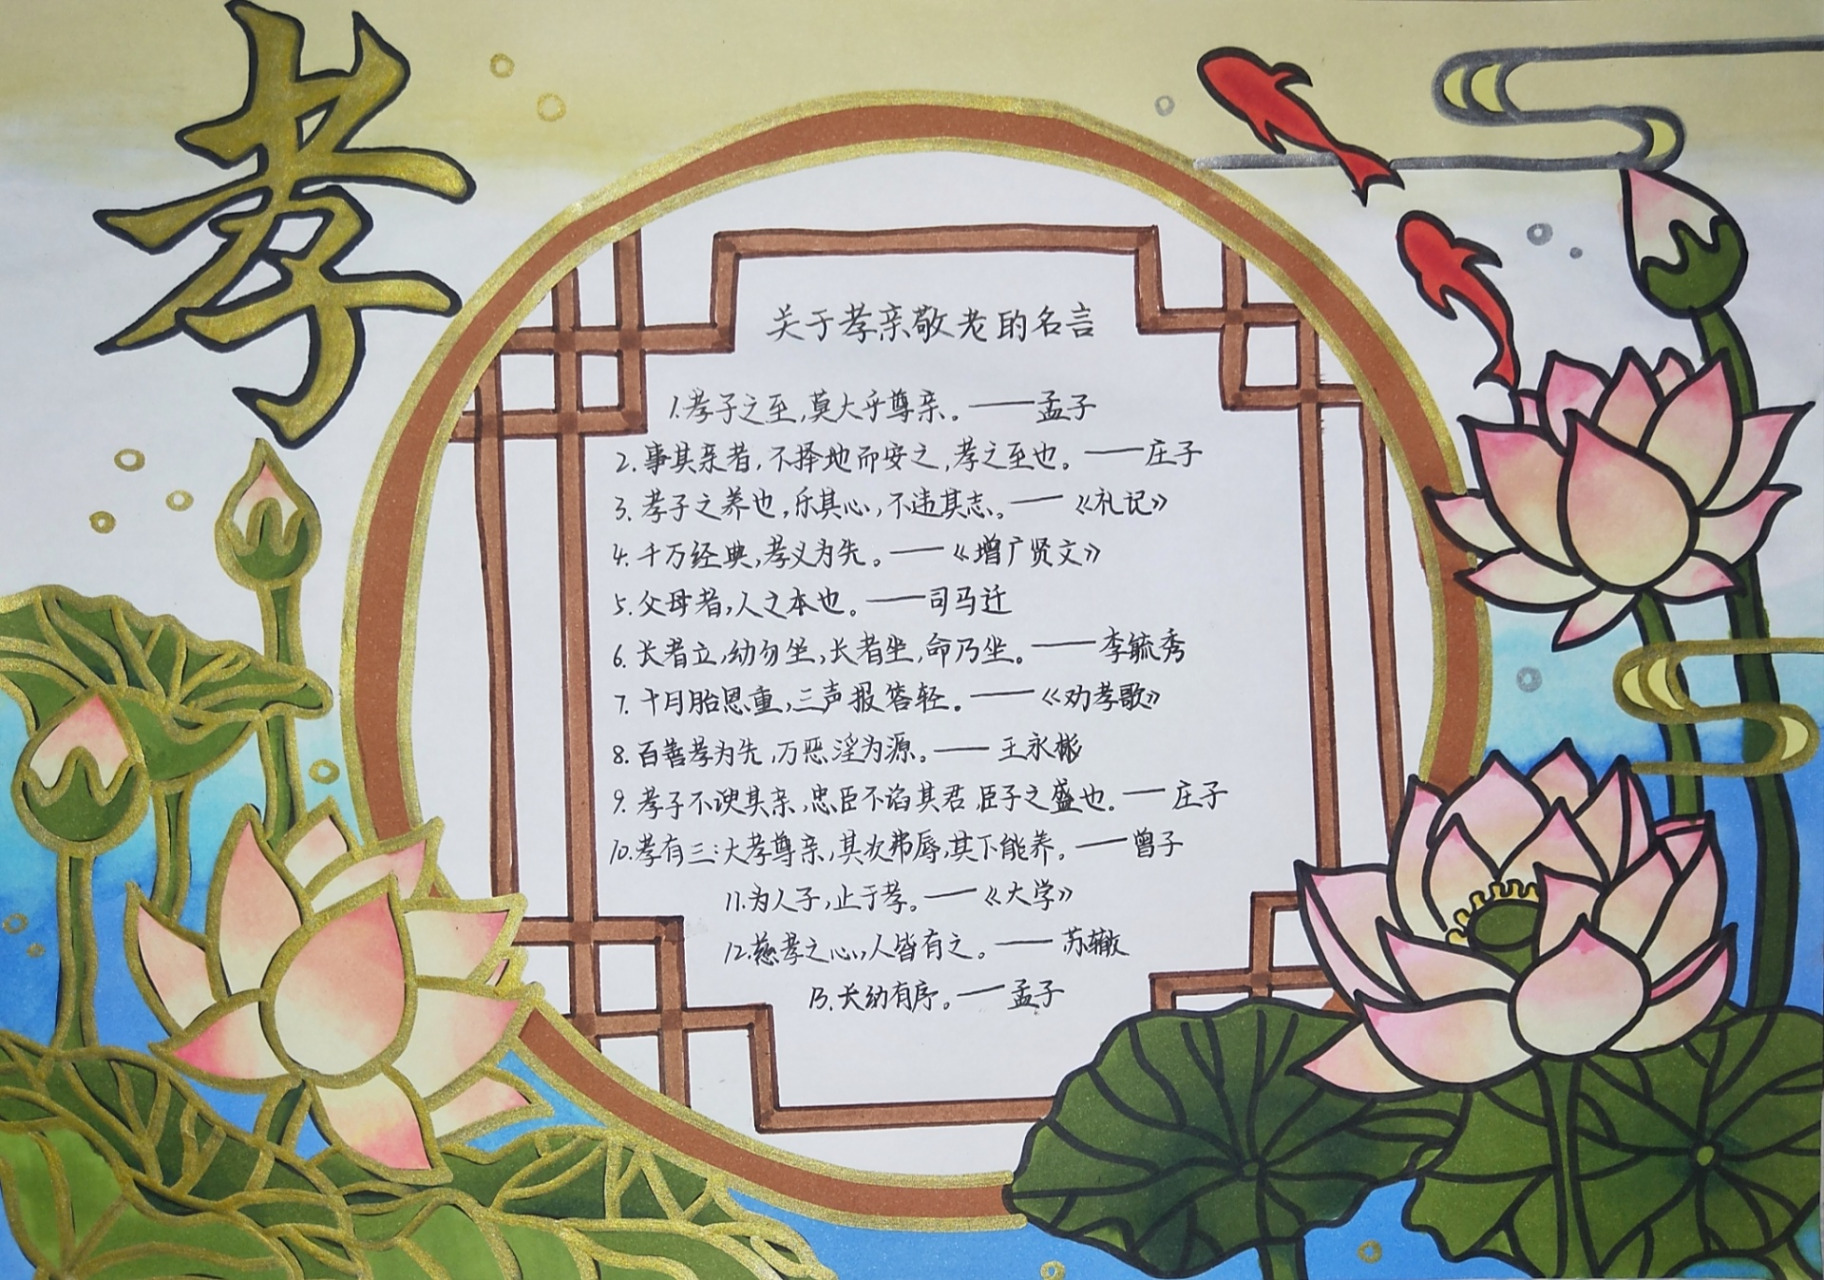 孝
关于孝亲敬老的名言
1.孝子之至,莫大乎尊亲。——孟子
2.事其亲者,不择地而安之,孝之至也。——庄子
3.孝子之养也,乐其心,不违其志。——《礼记》
4.千万经典,孝义为先。——《增广贤文》
5.父母者,人之本也。——司马迁
6.长者立,幼勿坐,长者坐,命乃坐。——李毓秀
7.十月胎恩重,三声报答轻。——《劝孝歌》
8.百善孝为先,万恶淫为源。——王永彬
9.孝子不谀其亲,忠臣不谄其君,臣子之盛也。—庄子
10.孝有三:大孝尊亲,其次弗辱,其下能养。——曾子
11.为人子,止于孝。——《大学》
12.慈孝之心,人皆有之。——苏辙
13.长幼有序。——孟子